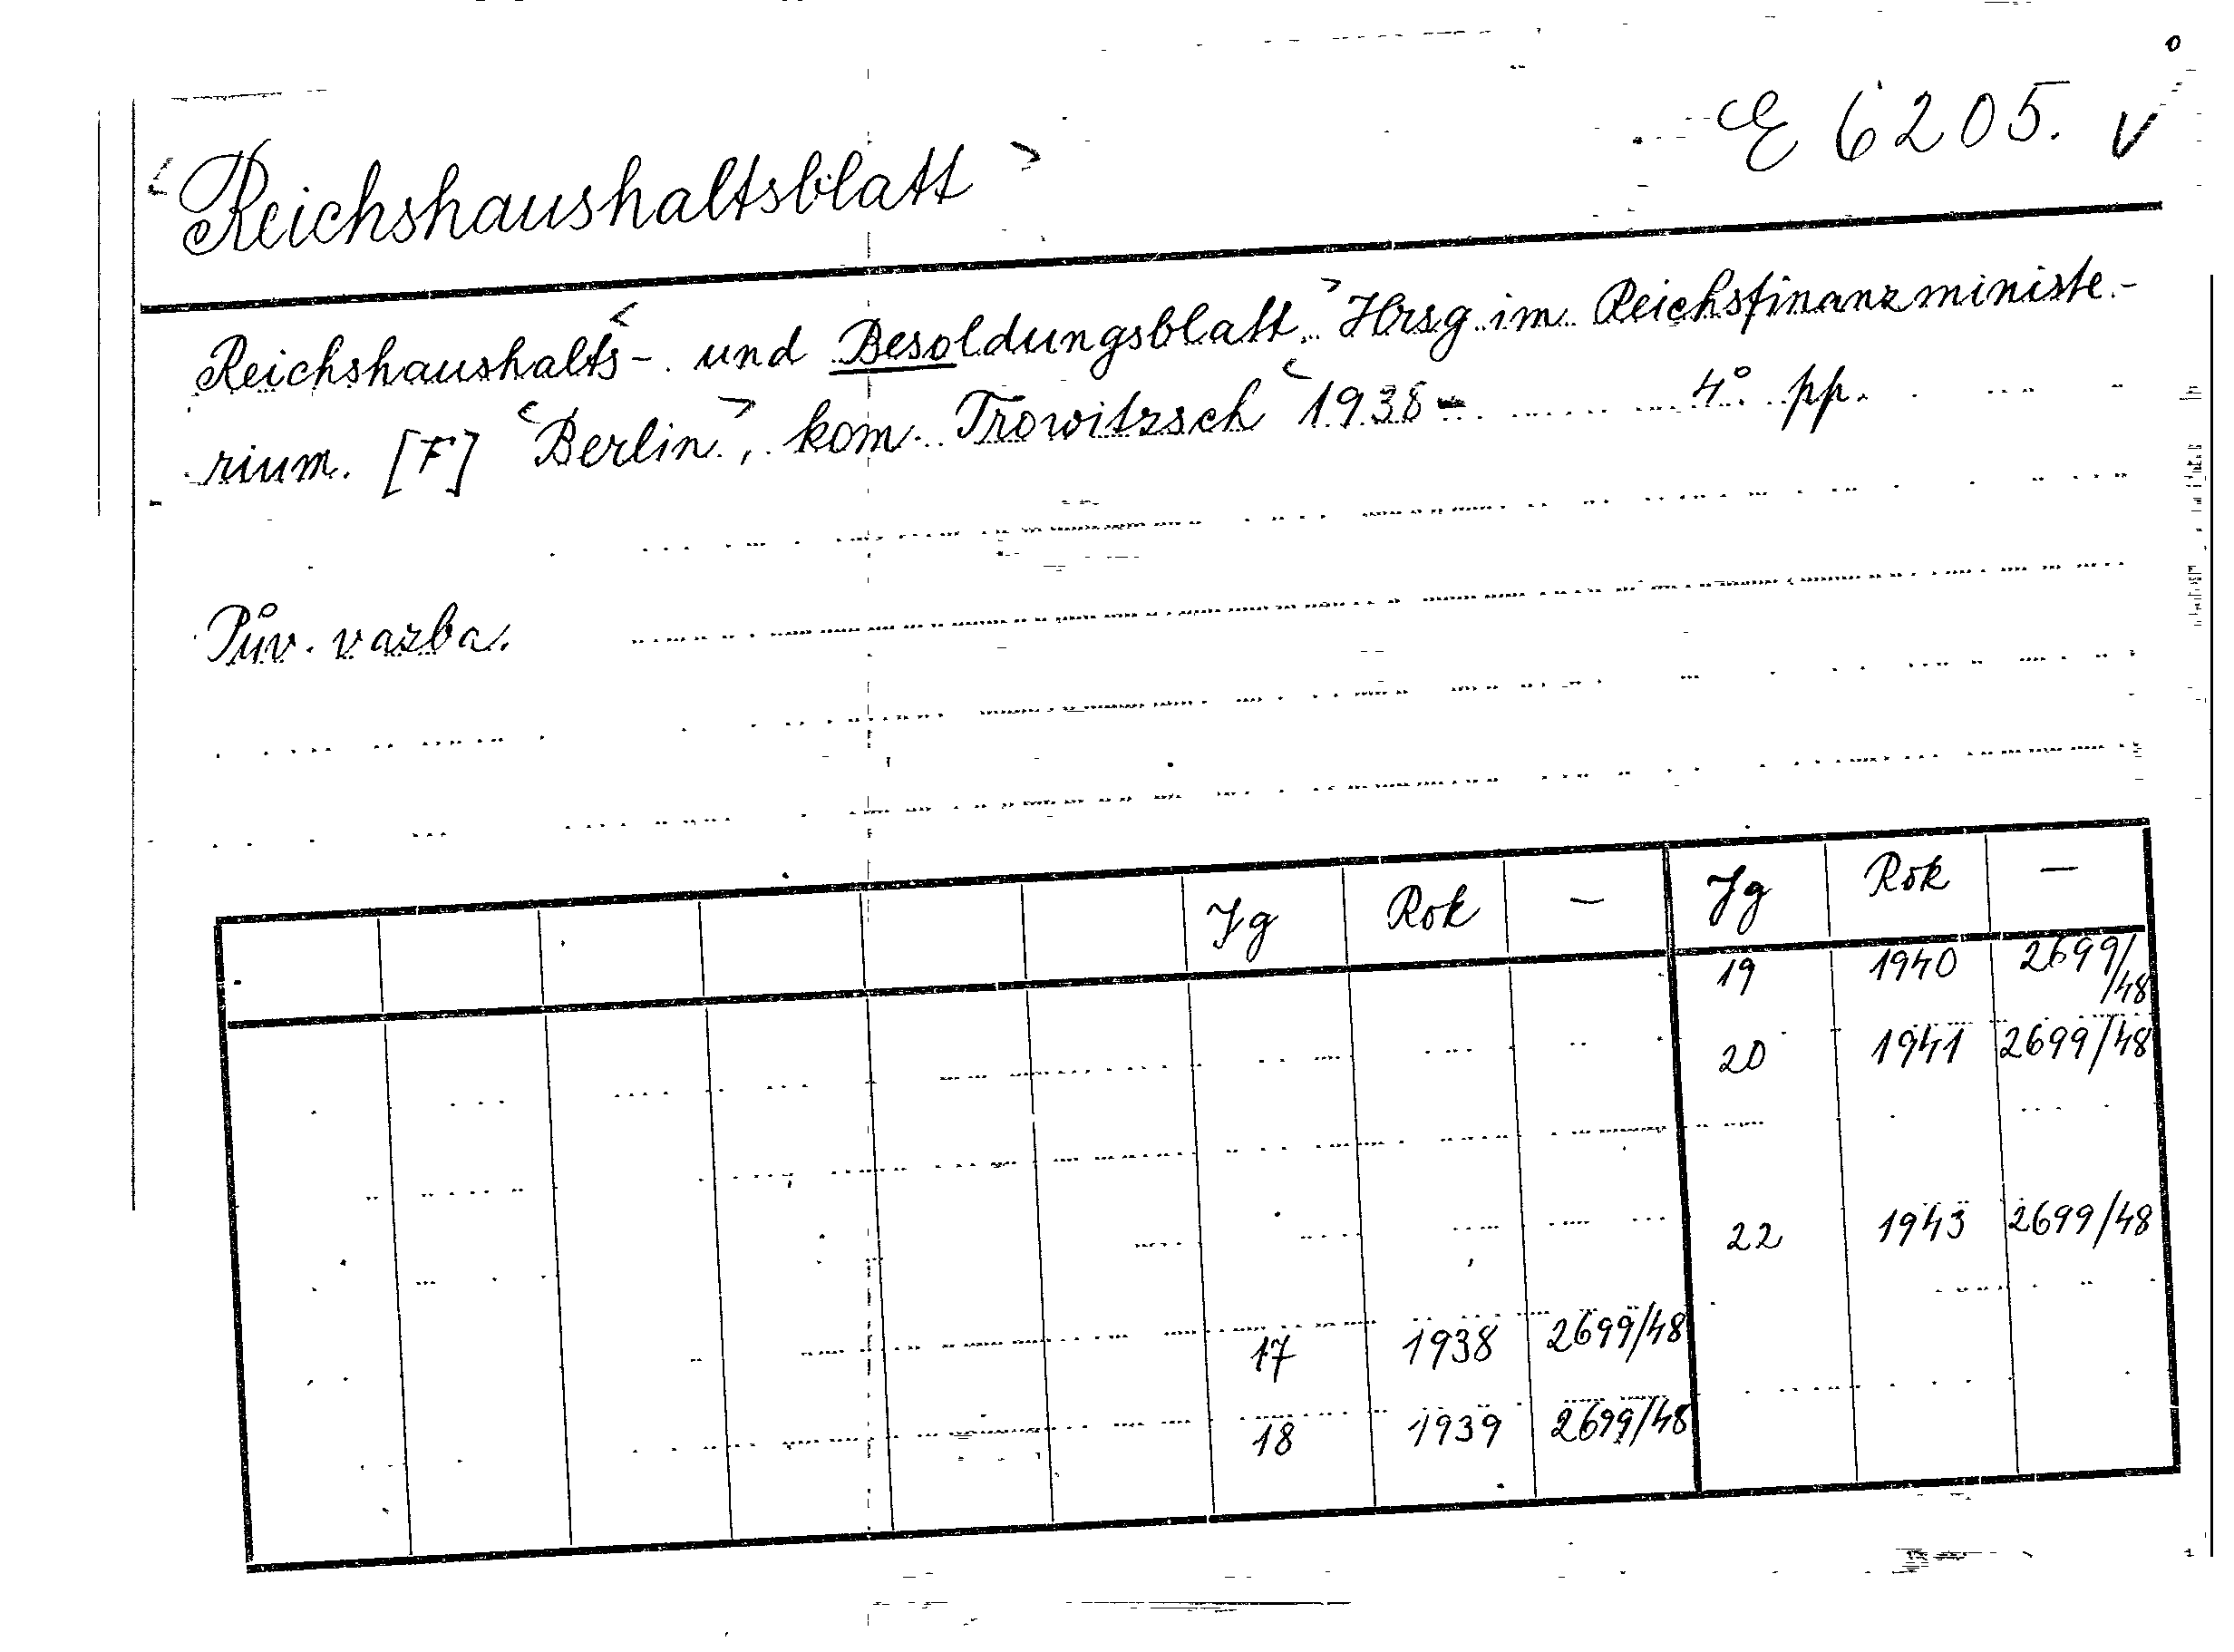 E 6205. v
<Reichshaushaltsblatt>
Reichshaushalts- < und Besoldungsblatt.> Hrsg. im Reichsfinanzministe-
rium. [F] <Berlin>, kom. Trowitzsch <1938- 4° pp.
Pův. vazba.
Jg Rok — Jg Rok —
19 1940 2699/
/48
20 1941 2699/48
22 1943 2699/48
17 1938 2699/48
18 1939 2699/48